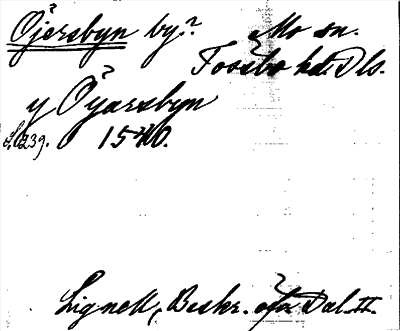 Öjersbyn by? Mo sn.
Tössbo hd. Dls.
y Öyarsbyn
S. 239. 1540.
Lignell, Beskr. öfv. Dal. II.